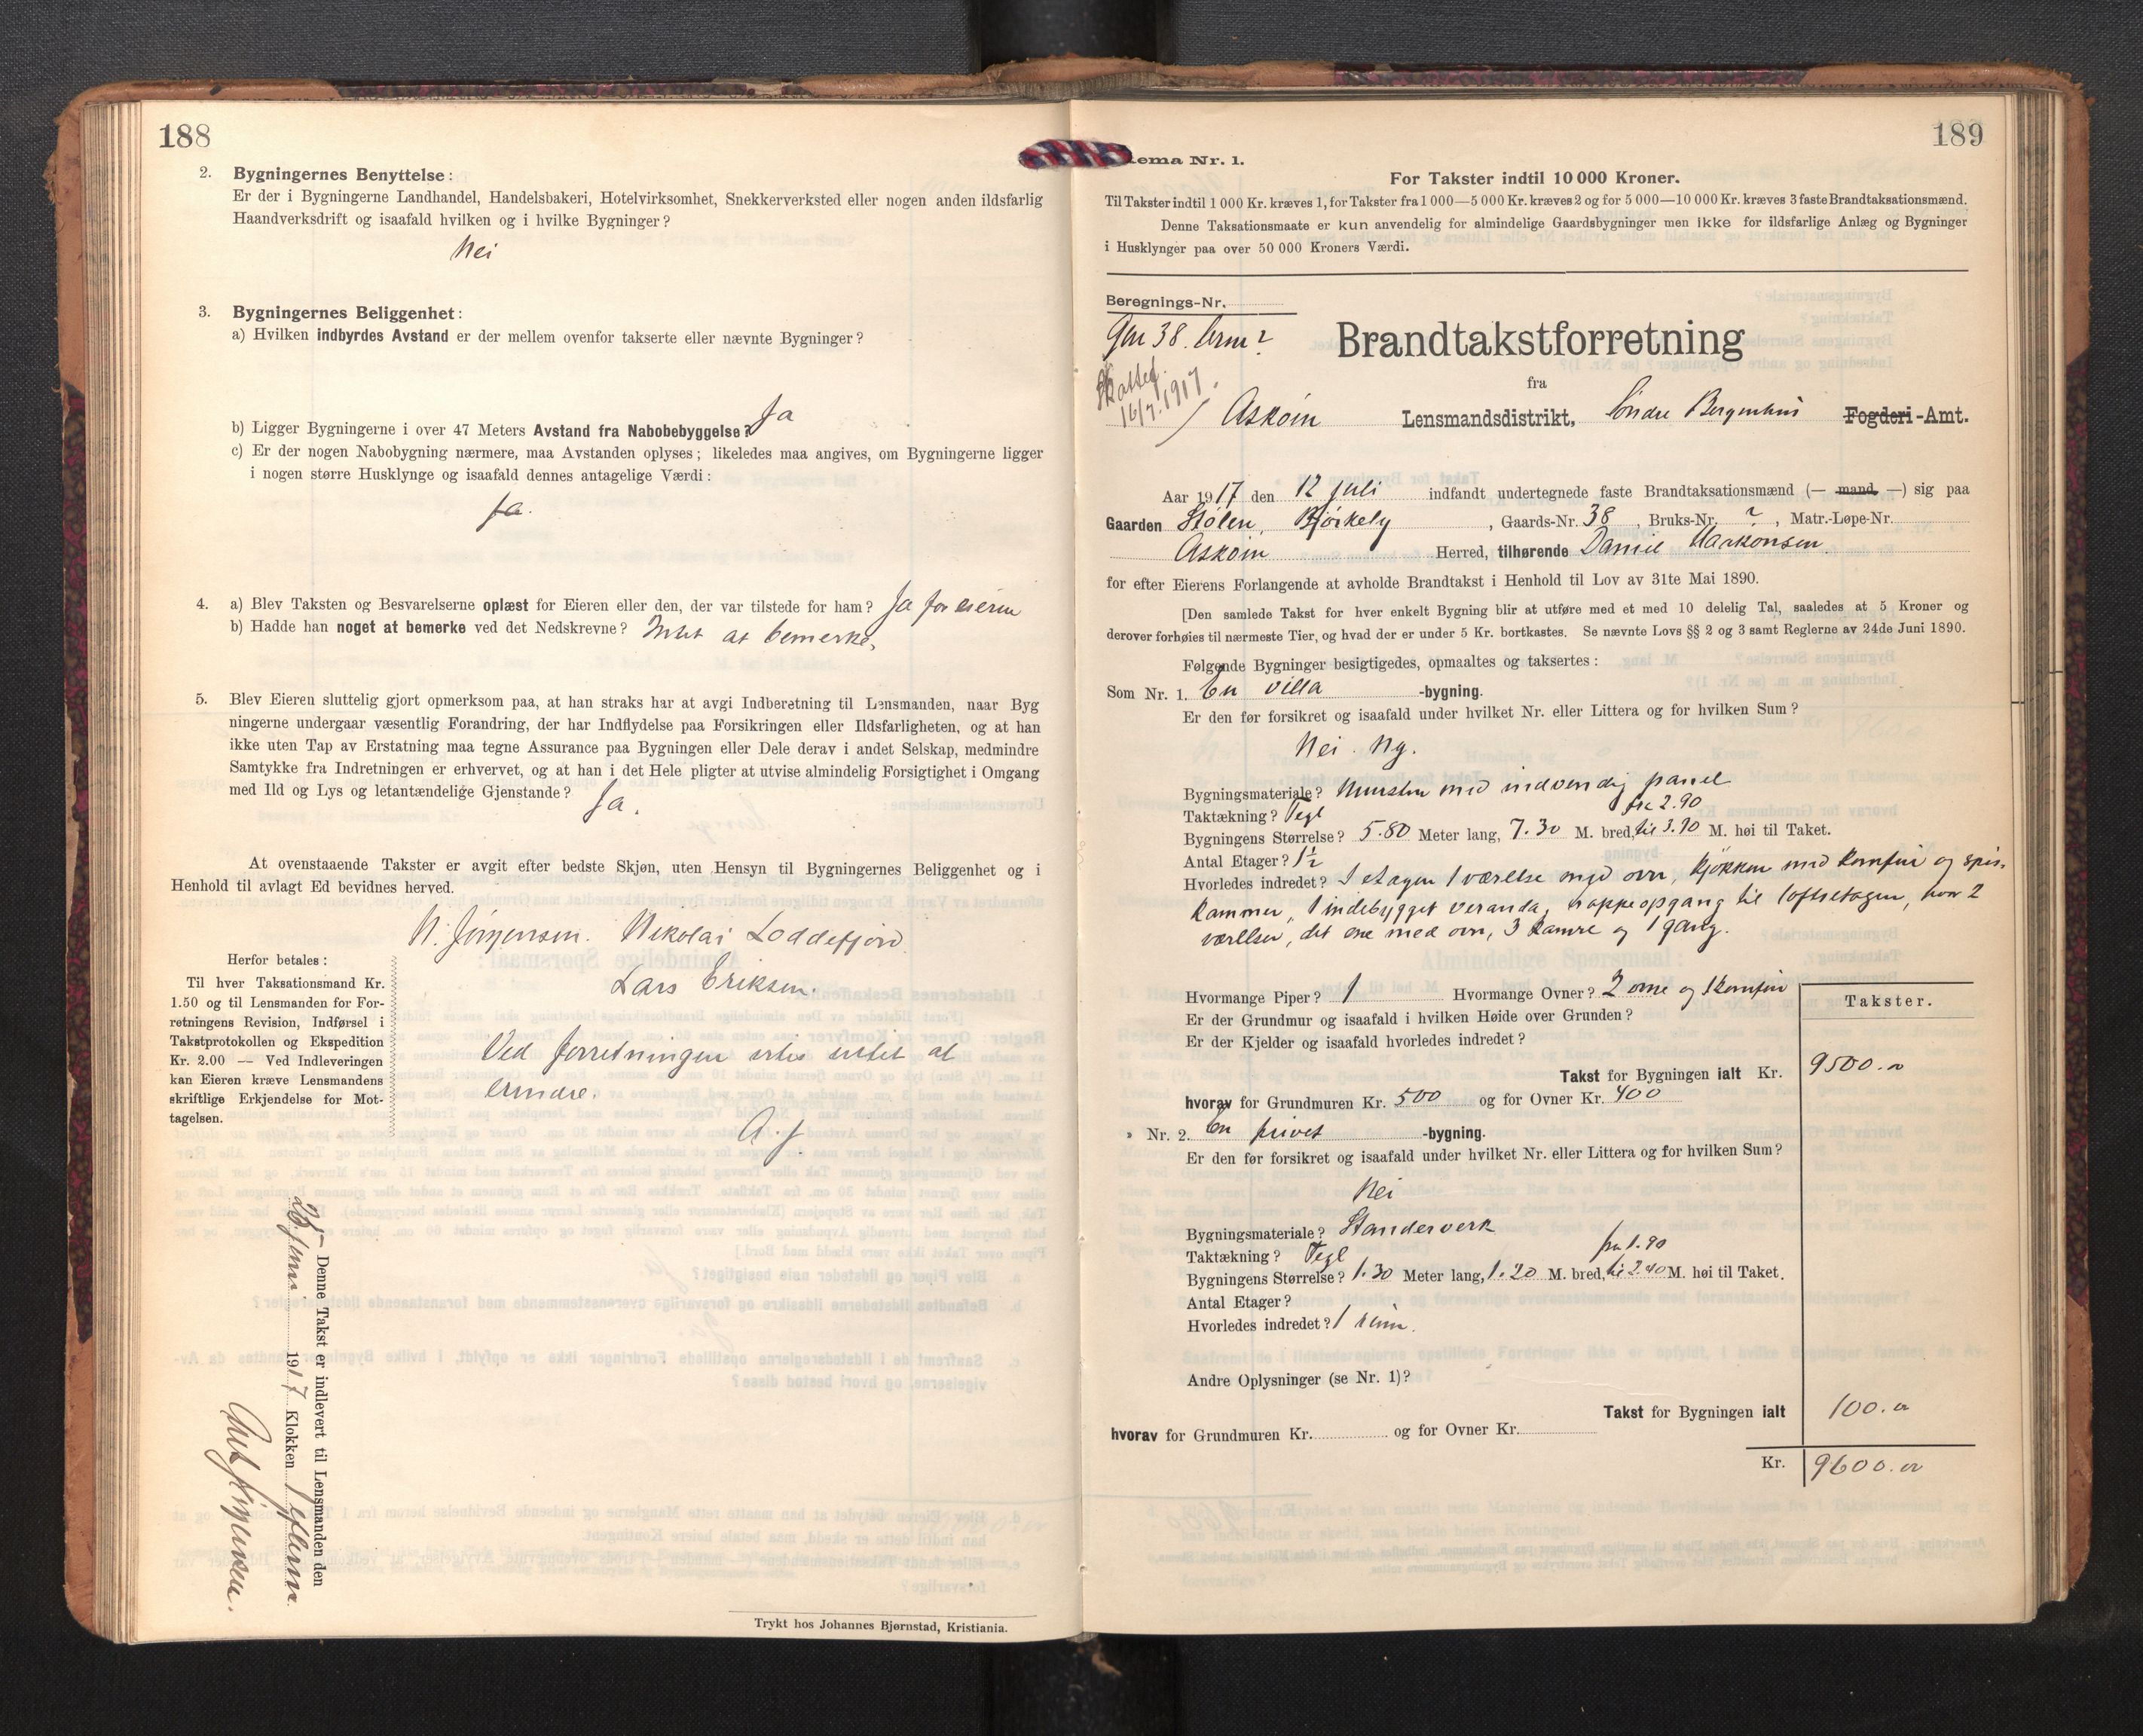 188
2. Bygningernes Benyttelse:
Er der i Bygningerne Landhandel, Handelsbakeri, Hotelvirksomhet, Snekkerverksted eller nogen anden ildsfarlig
Haandverksdrift og isaafald hvilken og i hvilke Bygninger?
Nei
3. Bygningernes Beliggenhet:
a) Hvilken indbyrdes Avstand er der mellem ovenfor takserte eller nævnte Bygninger?
b) Ligger Bygningerne i over 47 Meters Avstand fra Nabobebyggelse? Ja
c) Er der nogen Nabobygning nærmere, maa Avstanden oplyses; likeledes maa angives, om Bygningerne ligger
i nogen større Husklynge og isaafald dennes antagelige Værdi:
Ja.
4. a) Blev Taksten og Besvarelserne oplæst for Eieren eller den, der var tilstede for ham? Ja for eieren
b) Hadde han noget at bemerke ved det Nedskrevne? Intet at bemerke,
5. Blev Eieren sluttelig gjort opmerksom paa, at han straks har at avgi Indberetning til Lensmanden, naar Byg
ningerne undergaar væsentlig Forandring, der har Indflydelse paa Forsikringen eller Ildsfarligheten, og at han
ikke uten Tap av Erstatning maa tegne Assurance paa Bygningen eller Dele derav i andet Selskap, medmindre
Samtykke fra Indretningen er erhvervet, og at han i det Hele pligter at utvise almindelig Forsigtighet i Omgang
med Ild og Lys og letantændelige Gjenstande?
Ja.
At ovenstaaende Takster er avgit efter bedste Skjøn, uten Hensyn til Bygningernes Beliggenhet og i
Henhold til avlagt Ed bevidnes herved.
N. Jørgensen. Nikolai Loddefjord
Lars Eriksen.
Herfor betales:
Til hver Taksationsmand Kr.
1.50 og til Lensmanden for For-
retningens Revision, Indførsel i
Takstprotokollen og Ekspedition
Kr. 2.00 — Ved Indleveringen
kan Eieren kræve Lensmandens
skriftlige Erkjendelse for Mot-
tagelsen.
Ved forretningen intet at
erindre.
A. J
Denne Takst er indlevert til Lensmanden den
25 1917 Klokken efterm.
Trykt hos Johannes Bjørnstad, Kristiania.
189
ema Nr. 1.
For Takster indtil 10 000 Kroner.
Til Takster indtil 1 000 Kr. kræves 1, for Takster fra 1 000—5 000 Kr. kræves 2 og for 5 000—10 000 Kr. kræves 3 faste Brandtaksationsmænd.
Denne Taksationsmaate er kun anvendelig for almindelige Gaardsbygninger men ikke for ildsfarlige Anlæg og Bygninger
i Husklynger paa over 50 000 Kroners Værdi.
Beregnings-Nr.
Gnr 38. brnr ?
16/7. 1917.
Brandtakstforretning
fra
Askøin Lensmandsdistrikt, Søndre Bergenhus Fogderi-Amt.
Aar 1917 den 12 juli indfandt undertegnede faste Brandtaksationsmænd (— mand —) sig paa
Gaarden Stølen, Bjørkely, Gaards-Nr. 38, Bruks-Nr. ?, Matr.-Løpe-Nr.
Askøin Herred, tilhørende Daniel Haakonsen
for efter Eierens Forlangende at avholde Brandtakst i Henhold til Lov av 31te Mai 1890.
[Den samlede Takst for hver enkelt Bygning blir at utføre med et med 10 delelig Tal, saaledes at 5 Kroner og
derover forhøies til nærmeste Tier, og hvad der er under 5 Kr. bortkastes. Se nævnte Lovs §§ 2 og 3 samt Reglerne av 24de Juni 1890.
Følgende Bygninger besigtigedes, opmaaltes og taksertes:
Som Nr. 1. En villa -bygning.
Er den før forsikret og isaafald under hvilket Nr. eller Littera og for hvilken Sum?
Nei. Ny.
Bygningsmateriale? Mursten med indvendig panel
Taktækning? Tegl
fra 2.90
Bygningens Størrelse? 5.80 Meter lang, 7.30 M. bred, til 3.70 M. høi til Taket.
Antal Etager? 1½
Hvorledes indredet? I etagen 1 værelse med ovn, kjøkken med komfur og spis-
kammer, 1 indebygget veranda, trappeopgang til loftsetagen, hvor 2
værelser, det ene med ovn, 3 kamre og 1 gang.
Hvormange Piper? 1 Hvormange Ovner? 2 ovne og 1 komfur
Takster.
Er der Grundmur og isaafald i hvilken Høide over Grunden?
Er der Kjelder og isaafald hvorledes indredet?
Takst for Bygningen ialt Kr. 9500.00
hvorav for Grundmuren Kr. 500 og for Ovner Kr. 400
» Nr. 2. En privet -bygning.
Er den før forsikret og isaafald under hvilket Nr. eller Littera og for hvilken Sum?
Nei
Bygningsmateriale? Standerverk
Taktækning? Tegl
fra 1.90
Bygningens Størrelse? 1.30 Meter lang, 1.20 M. bred, til 2.40 M. høi til Taket.
Antal Etager?
Hvorledes indredet? 1 rum.
Andre Oplysninger (se Nr. 1)?
Takst for Bygningen ialt 100.00
hvorav for Grundmuren Kr. og for Ovner Kr.
Kr. 9600.00